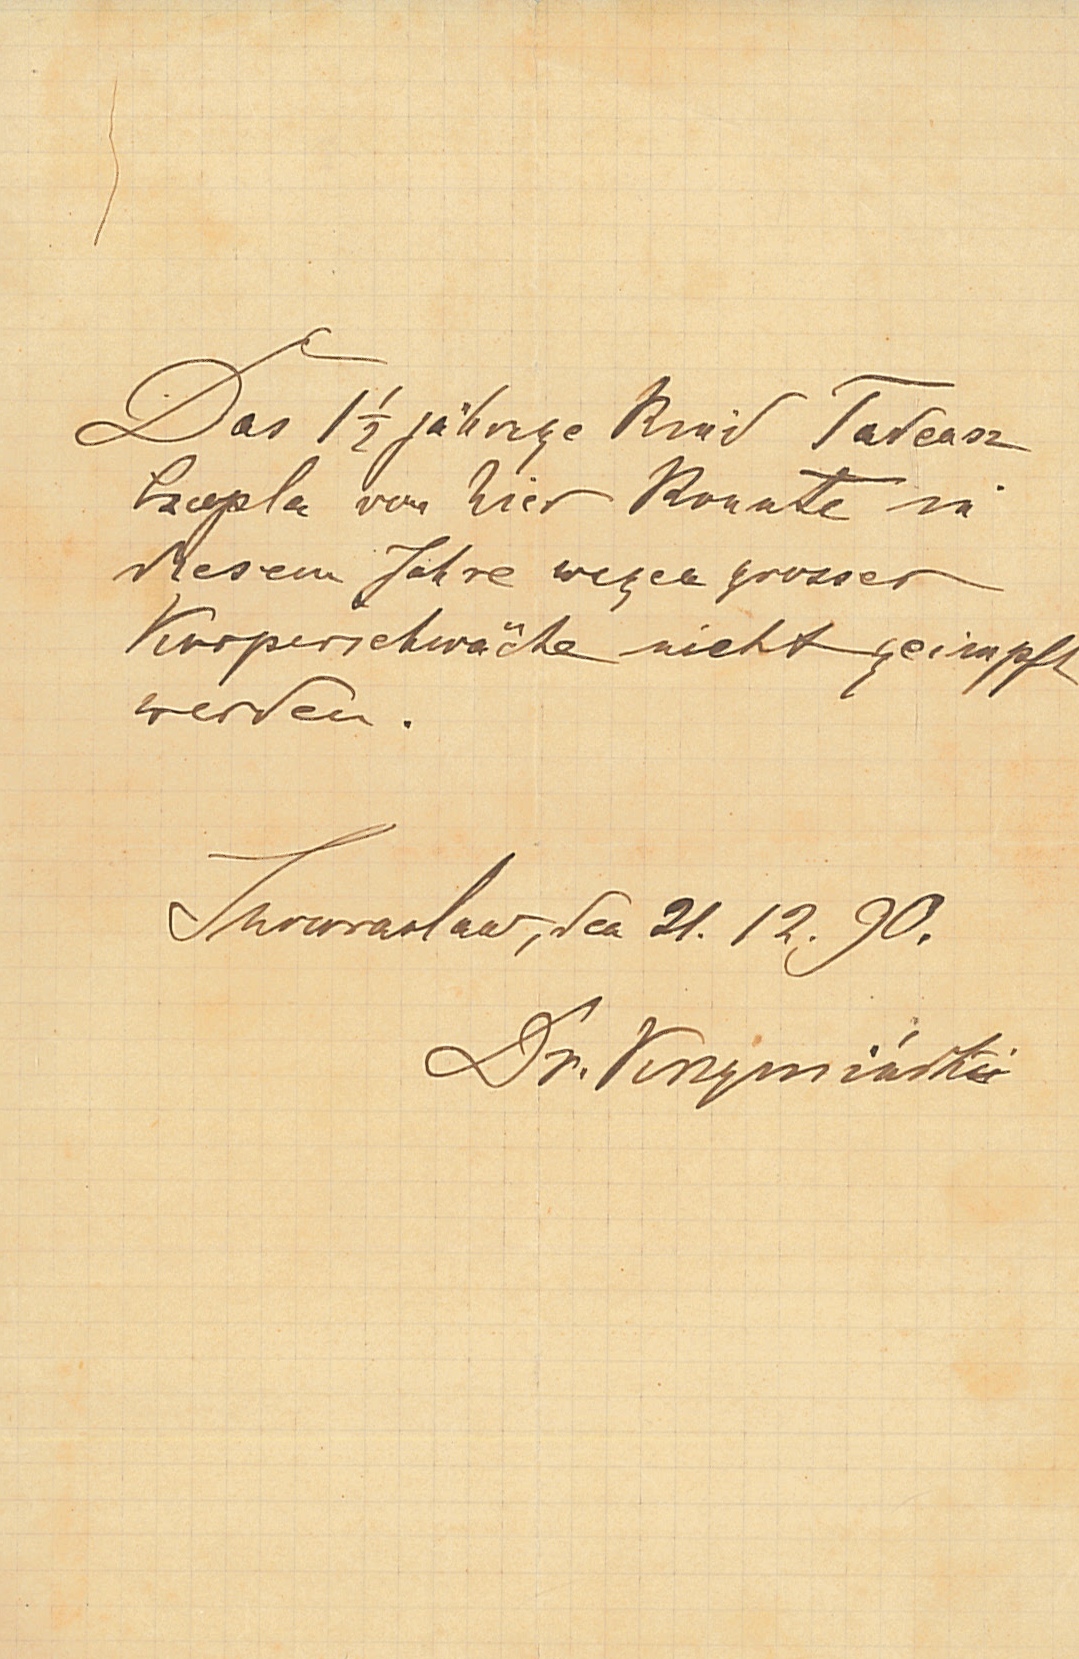 Das 1½ jährige Kind Tadeusz
Czapla von hier konnte in
diesem Jahre wegen grosser
Körperschwäche nicht geimpft
werden.
Inowrazlaw, den 21. 12. 90.
Dr. Krzymiński